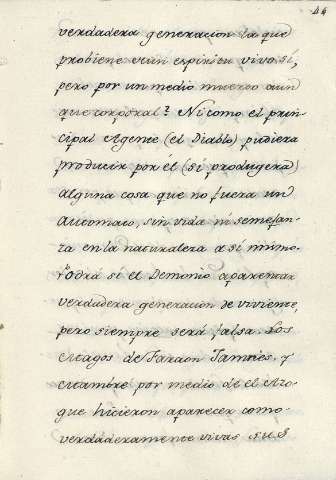 44
verdadera generacion la que
probiene de un espiritu vivo sí,
pero por un medio muerto aun
que corporal? Ni como el prin-
cipal Agente (el Diablo) pudiera
producir por él (si produgera)
alguna cosa que no fuera un
Automato, sin vida ni semejan-
za en la naturaleza a sí mismo.
Podrá sí el Demonio aparentar
verdadera generacion de viviente,
pero siempre será falsa. Los
Magos de Faraon Jamnés, y
Mambré por medio de él
que hicieron aparecer como
verdaderamente vivas sus